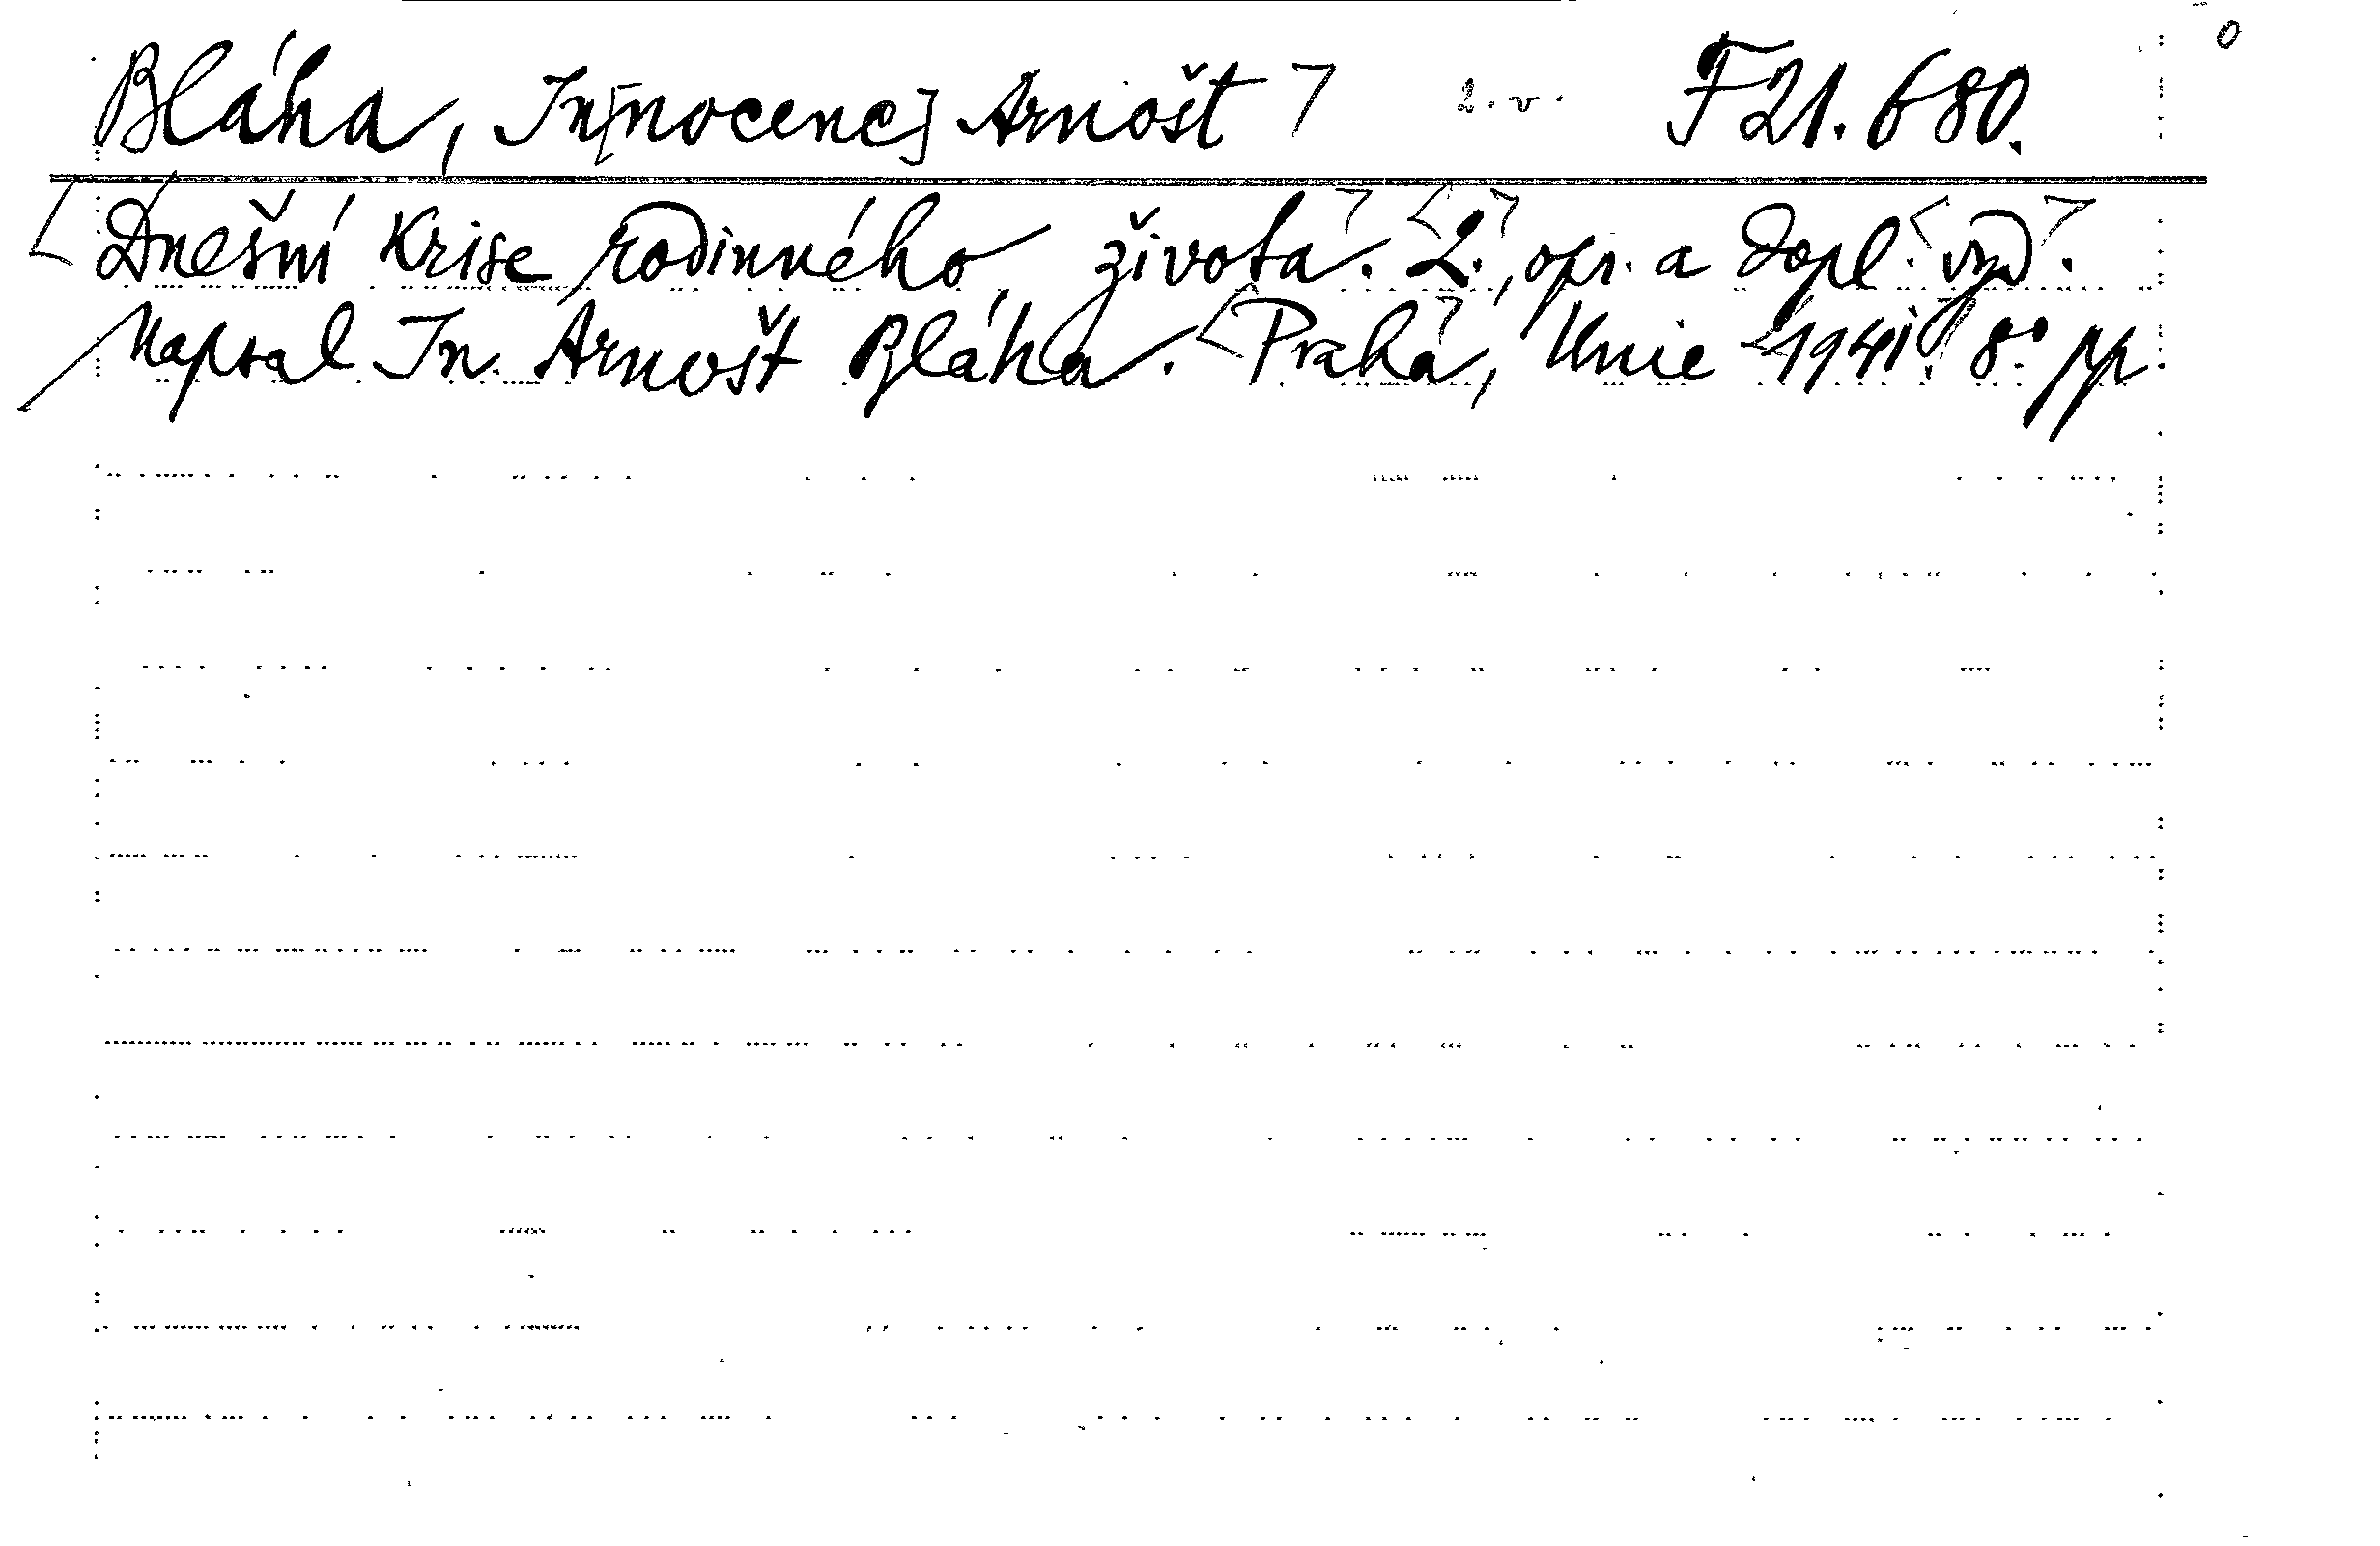 Bláha, In[nocenc] Arnošt 2. v. F 21.680.
Dnešní krise rodinného života. 2., opr. a dopl. vyd.
Napsal In. Arnošt Bláha. Praha, Unie 1941. 8°.